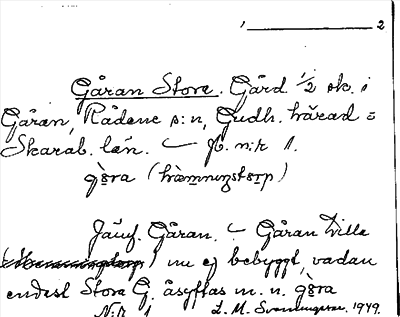 1 2
Gåran Stora. Gård. 1/2 sk. i
Gåran, Rådene s:n, Gudh. härad =
Skarab. län. — jb. n:r 1.
gɔ̀ra (hræmnıŋstɔrp)
Jämf. Gåran. — Gåran Lilla
nu ej bebyggt, vadan
endast Stora G. åsyftas m. n. gɔ̀ra
N:r 1 L. M. 1949.